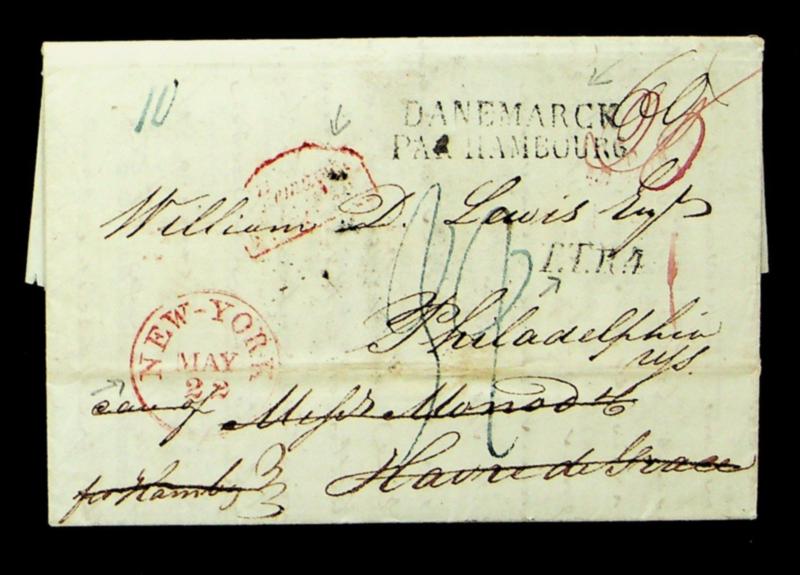 10
DANEMARCK
PAR HAMBOURG
William D. Lewis Esqr
T.T.R.4
Philadelphia
NEW-YORK
MAY
22
care of Messrs Monod &
Havre de Grace
per Hambg